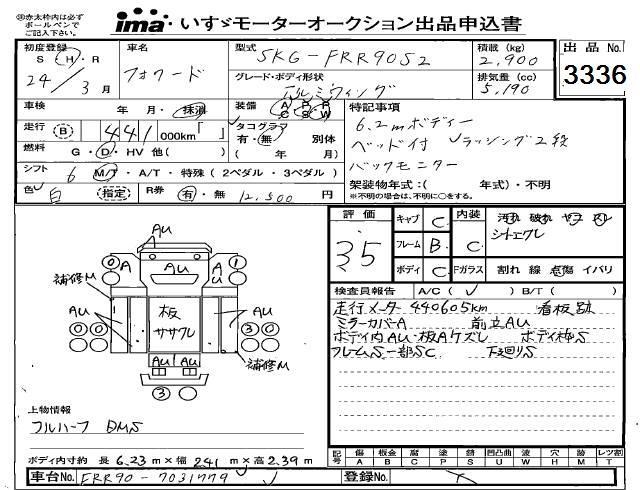 ※赤太枠内は必ず
ボールペンで
ご記入下さい。
ima いすゞモーターオークション出品申込書
初度登録 S H・R 24年 3月
車名 フォワード
型式 SKG-FRR90S2
積載(kg) 2,900
出品No. 3336
グレード・ボディ形状 アルミウィング
排気量(cc) 5,190
車検 年・月・抹消
装備 A P P C S W
特記事項
走行 (B) 441,000km「 」
タコグラフ 有・無 別体 ( 年 月)
6.2mボディー
燃料 G・D・HV 他( )
ベッド付 ラッシング2段
シフト 6 M/T・A/T・特殊(2ペダル・3ペダル)
バックモニター
架装物年式:( 年式)・不明
※不明の場合は、不明に○をする。
色 白 (指定) R券 有・無 12,500円
評価 3.5
キャブ C 内装 C
フレーム B
ボディ C Fガラス
汚れ 破れ ヤコ スレ
シートコゲレ
割れ 線 点傷 イバリ
検査員報告 A/C( ✓ ) B/T( )
走行メーター 440605km 看板跡
ミラーカバーA 前立AU
ボディ内AU・板Aケズレ ボディ枠S
フレームS一部SC 下廻りS
AU
A AU A
補修M
AU 板 ササクレ AU
AU AU
補修M
0 1
0 0 3 0
3
上物情報
フルハーフ DMS
ボディ内寸約 長 6.23m×幅 2.41m×高 2.39m
記号 傷 A 板金 B 腐 C 塗 P 錆 S 凹凸曲 U 波 W 穴 H 跡 M レツ割 T
車台No. FRR90-7031779
登録No.